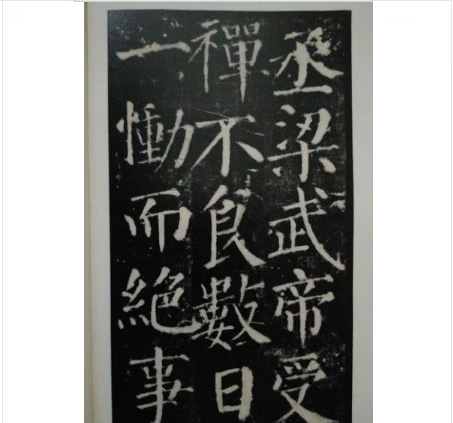 丞梁武帝受
禪不食數日
一慟而絶事